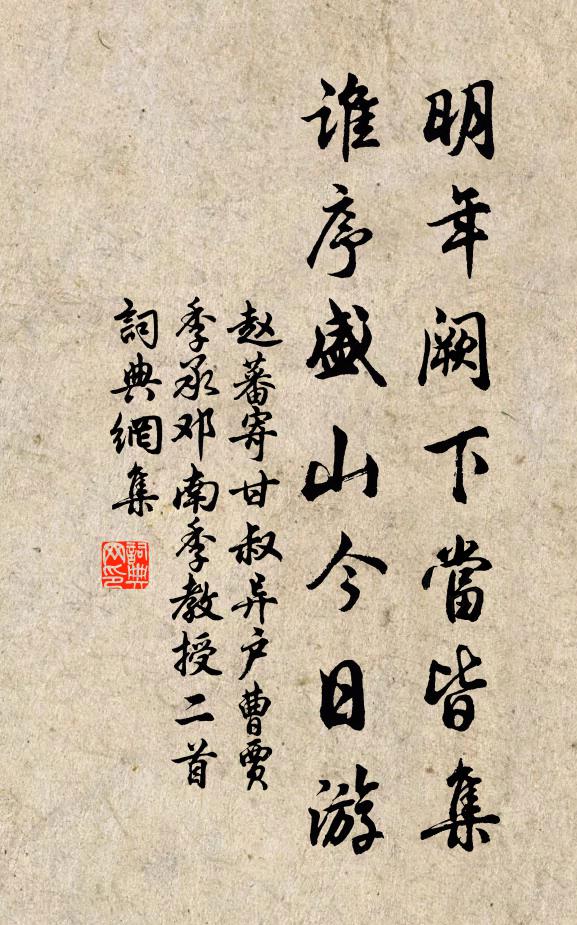 明年阙下當皆集
谁序盛山今日游
赵蕃寄甘叔异户曹贾
季承邓南季教授二首
詞典網集
詞典
网印